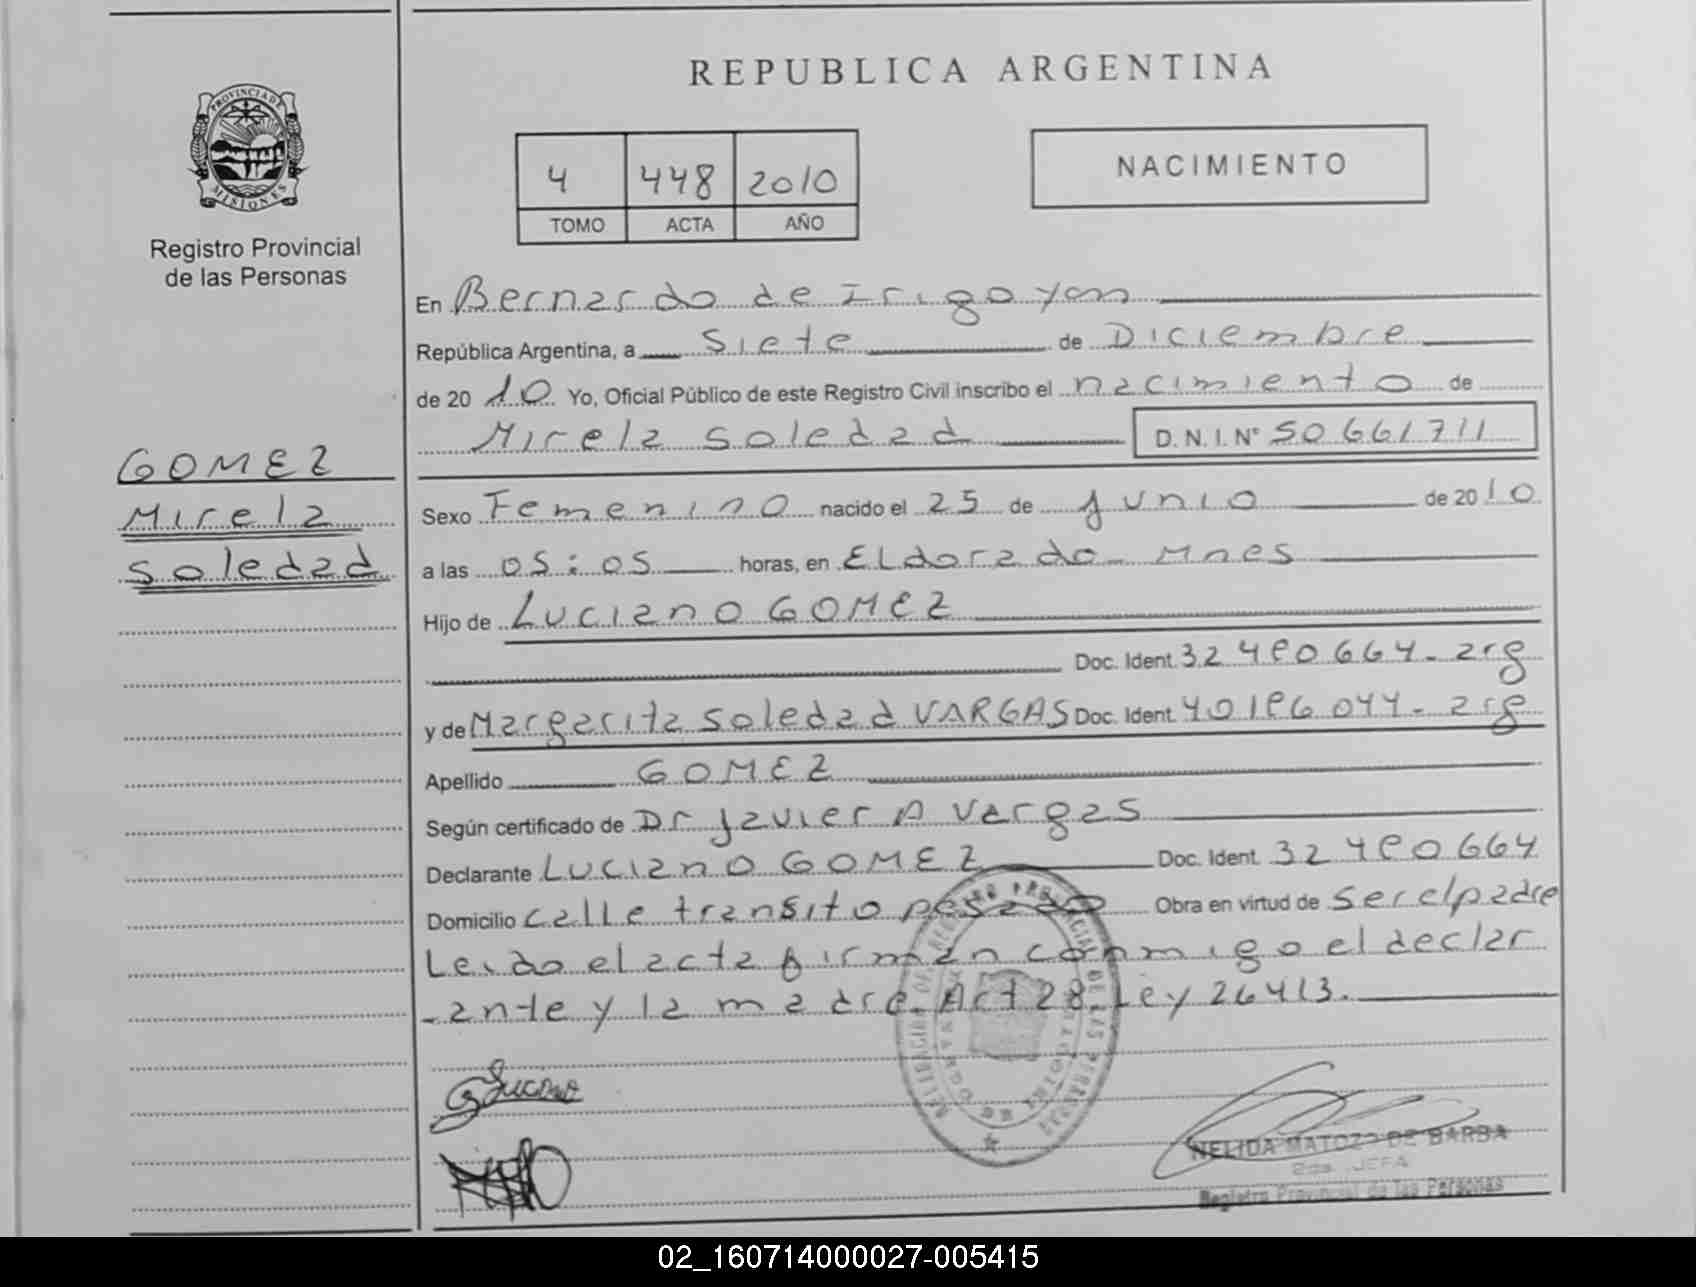 REPUBLICA ARGENTINA
PROVINCIA DE
MISIONES
Registro Provincial
de las Personas
4 448 2010
TOMO ACTA AÑO
NACIMIENTO
GOMEZ
Mirela
Soledad
En Bernardo de Irigoyen
República Argentina, a Siete de Diciembre
de 2010 Yo, Oficial Público de este Registro Civil inscribo el nacimiento de
Mirela Soledad D.N.I. N° 50661711
Sexo Femenino nacido el 25 de Junio de 2010
a las 05:05 horas, en Eldorado - Mnes
Hijo de Luciano GOMEZ
Doc. Ident. 32480664 - arg
y de Margarita Soledad VARGAS Doc. Ident. 40186044 - arg
Apellido GOMEZ
Según certificado de Dr Javier A Vargas
Declarante Luciano GOMEZ Doc. Ident. 32480664
Domicilio Calle transito pesado Obra en virtud de Ser el padre
Leido el acta firman conmigo el declar
-ante y la madre. Art 28. Ley 26413.
NELIDA MATOZO DE BARBA
2da. JEFA
Registro Provincial de las Personas
02_160714000027-005415